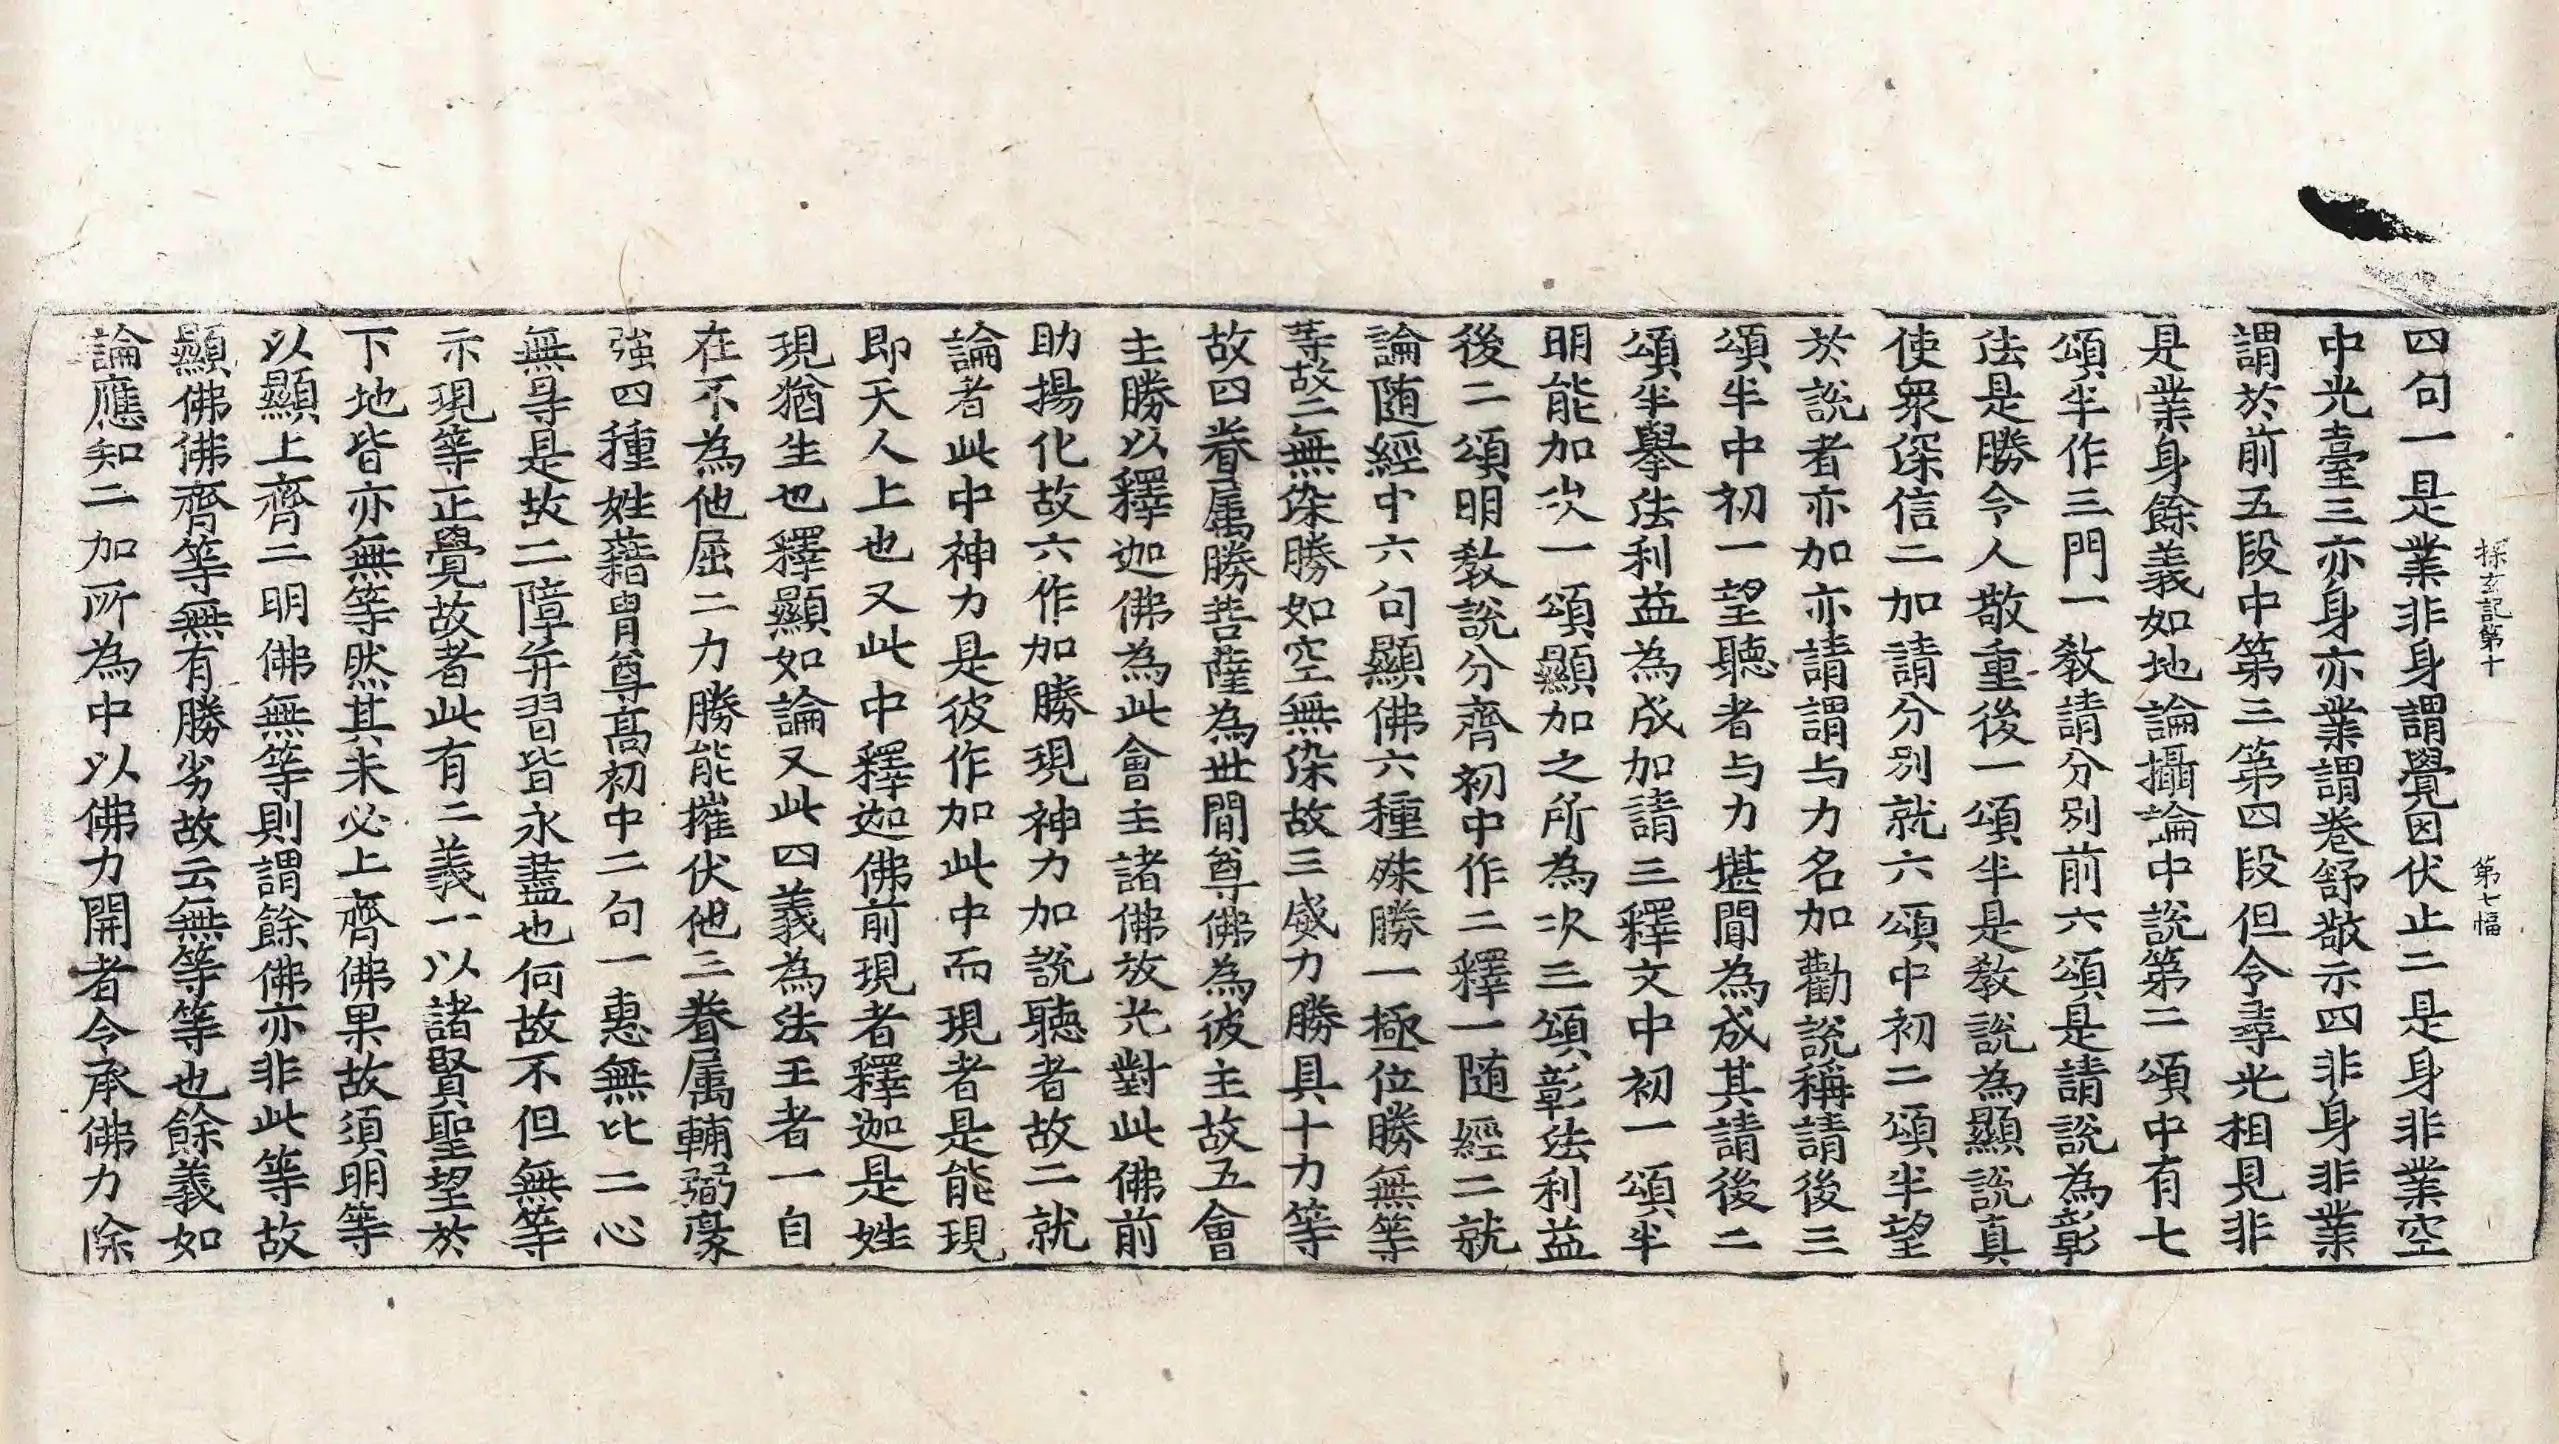 探玄記第十 第七幅
四句一是業非身謂覺因伏止二是身非業空
中光臺三亦身亦業謂卷舒敬示四非身非業
謂於前五段中第三第四段但令尋光相見非
是業身餘義如地論攝論中說第二頌中有七
頌半作三門一教請分別前六頌是請說為彰
法是勝令人敬重後一頌半是教說為顯說真
使眾深信二加請分別就六頌中初二頌半望
於說者亦加亦請謂与力名加勸說稱請後三
頌半中初一望聽者与力堪聞為成其請後二
頌半舉法利益為成加請三釋文中初一頌半
明能加次一頌顯加之所為次三頌彰法利益
後二頌明教說分齊初中作二釋一随經二就
論随經中六句顯佛六種殊勝一極位勝無等
等故二無染勝如空無染故三威力勝具十力等
故四眷屬勝菩薩為世間尊佛為彼主故五會
主勝以釋迦佛為此會主諸佛放光對此佛前
助揚化故六作加勝現神力加說聽者故二就
論者此中神力是彼作加此中而現者是能現
即天人上也又此中釋迦佛前現者釋迦是姓
現猶生也釋顯如論又此四義為法王者一自
在不為他屈二力勝能摧伏他三眷属輔弼豪
強四種姓藉胄尊高初中二句一惠無比二心
無㝵是故二障并習皆永盡也何故不但無等
示現等正覺故者此有二義一以諸賢聖望於
下地皆亦無等然其未必上齊佛果故須明等
以顯上齊二明佛無等則謂餘佛亦非此等故
顯佛佛齊等無有勝劣故云無等等也餘義如
論應知二加所為中以佛力開者令承佛力除